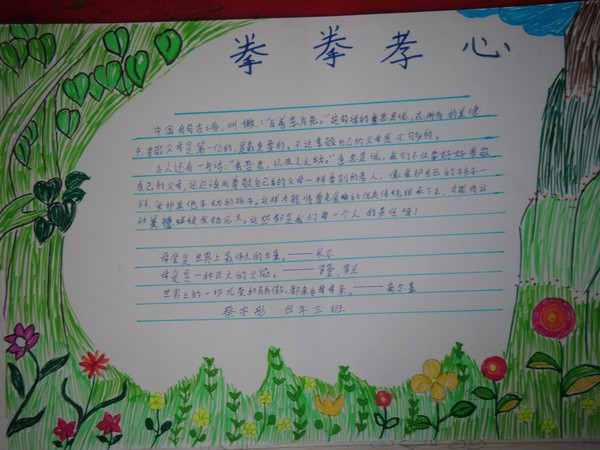 拳拳孝心
中国有句古语,叫做:"百善孝为先。"这句话的意思是说,在所有的美德
中,孝敬父母是第一位的,是最重要的。不过孝敬自己的父母是不够的。
古人还有一句话:"老吾老,以及人之老。"意思是说,我们不仅要好好孝敬
自己的父母,还应该去尊敬自己的父母一样尊敬别的老人,像爱护自己的孩子一
样,爱护其他
种美德继续发扬光大,这些都是我们每一个人的责任呀!
母爱是世界上最伟大的力量。——米尔
母爱是一种巨大的火焰。——罗曼、罗兰
世界上的一切光荣和骄傲,都来自母亲。——高尔基
蔡宇彤 四年三班